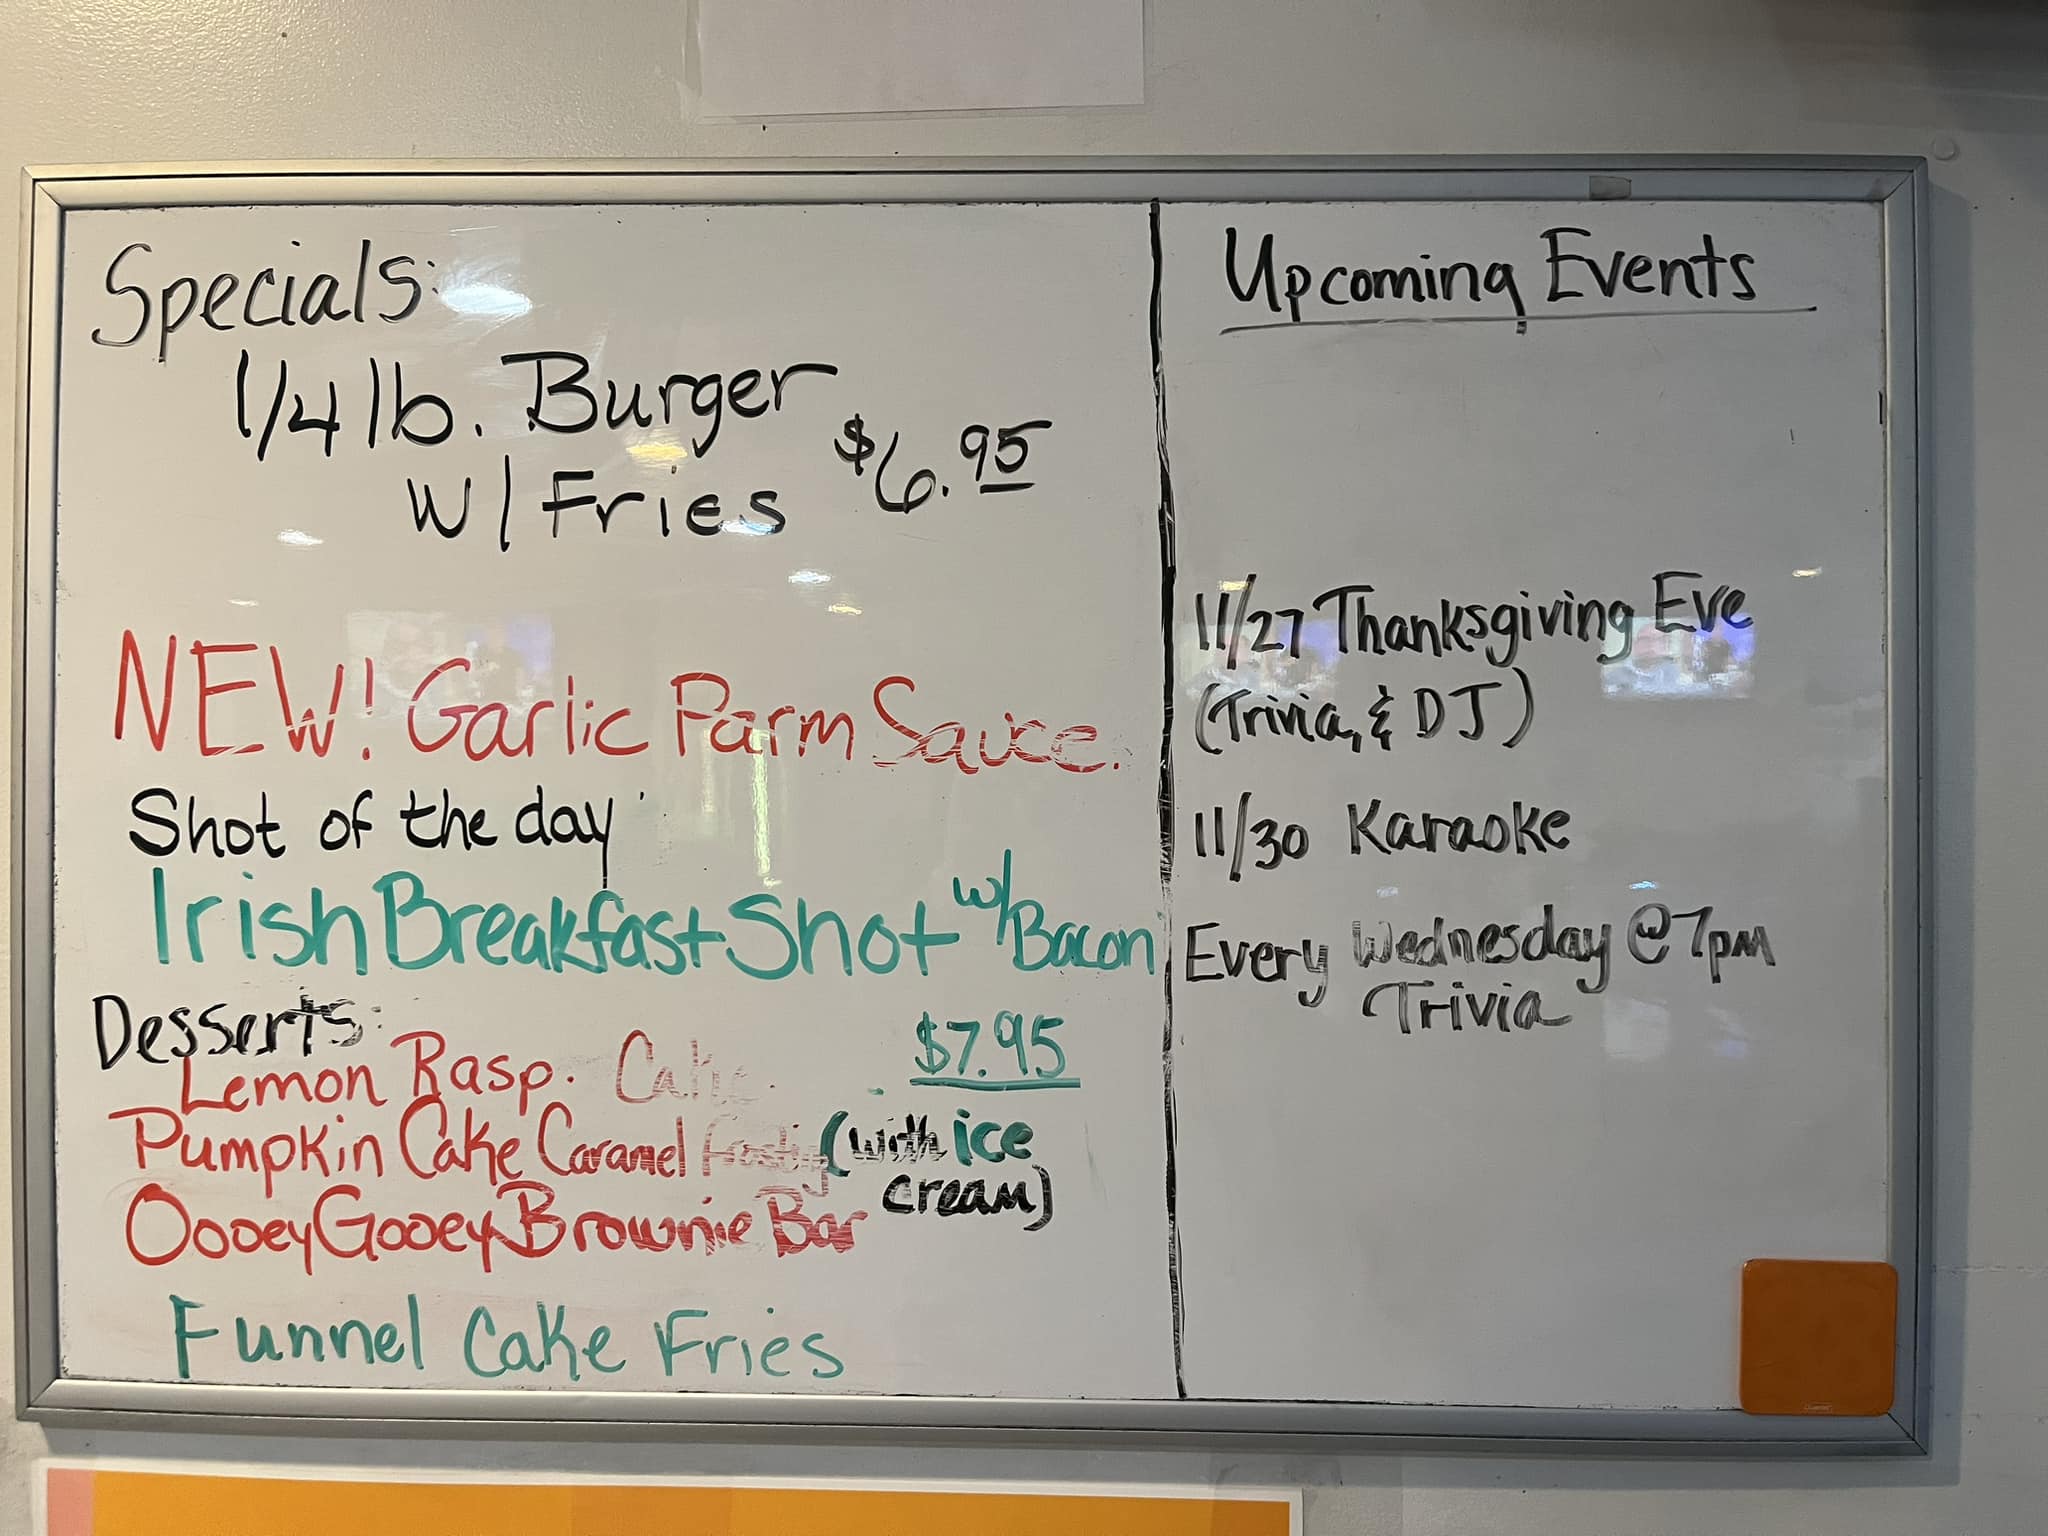 Specials:
1/4 lb. Burger
w/ Fries $6.95
NEW! Garlic Parm Sauce.
Shot of the day
Irish Breakfast Shot w/Bacon
Desserts: $7.95
Lemon Rasp. Cake.
Pumpkin Cake Caramel Frosting (with ice
cream)
OooeyGooey Brownie Bar
Funnel Cake Fries
Upcoming Events
11/27 Thanksgiving Eve
(Trivia, & DJ)
11/30 Karaoke
Every Wednesday @ 7pm
Trivia